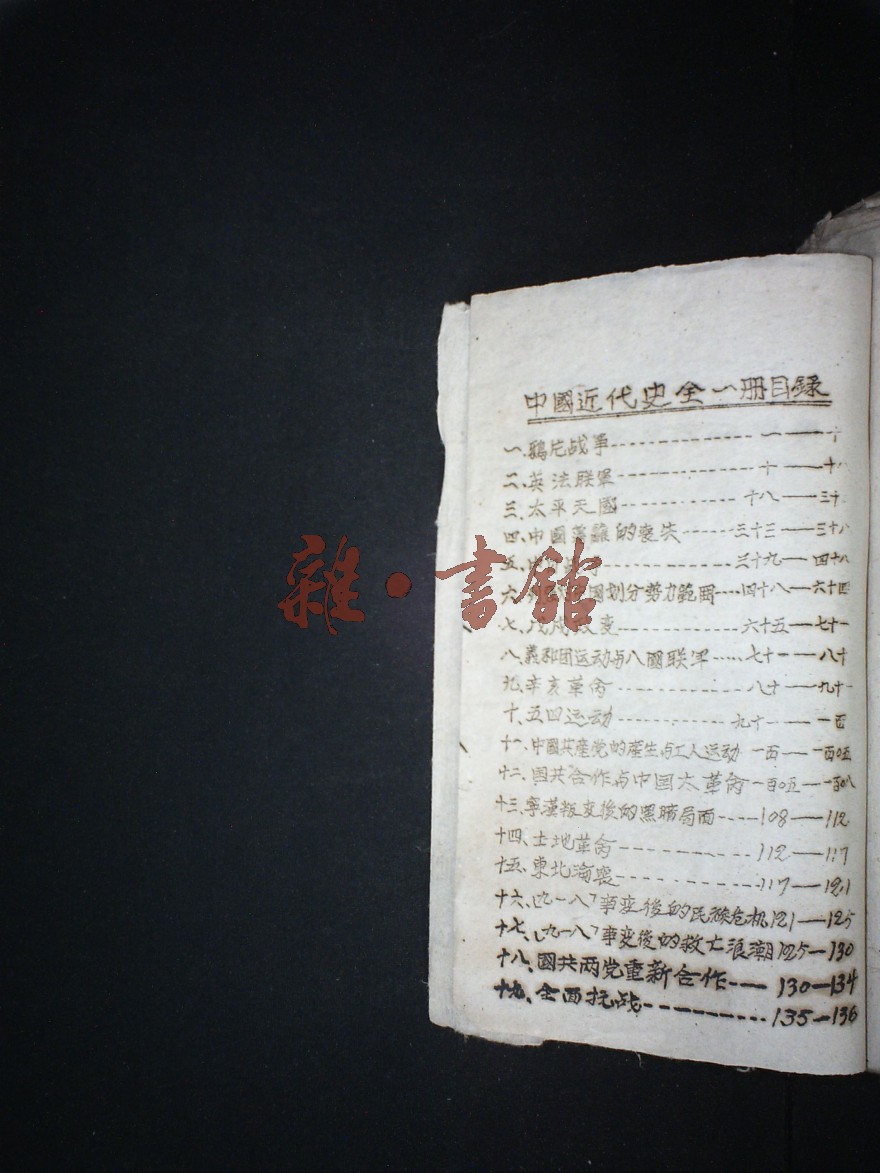 中國近代史全一册目錄
一、鴉片战爭------------一——十
二、英法联軍------------十——十八
三、太平天國------------十八——三十
四、中國藩籬的喪失------三十三——三十八
五、中------------三十九——四十八
六、國划分勢力範囲----四十八——六十四
七、戊戌政变------------六十五——七十一
八、義和团运动与八國联軍-----七十一——八十
九、辛亥革命------------八十——九十一
十、五四运动------------九十一——一百
十一、中國共產党的產生与工人运动 一百——一百0五
十二、国共合作与中国大革命 一百0五——一百0八
十三、寧漢叛变後的黑暗局面----108——112
十四、土地革命------------112——117
十五、東北淪喪------------117——121
十六、「九一八」事变後的民族危机121——125
十七、「九一八」事变後的救亡浪潮125——130
十八、國共两党重新合作----130——134
十九、全面抗战------------135——136
雜·書館